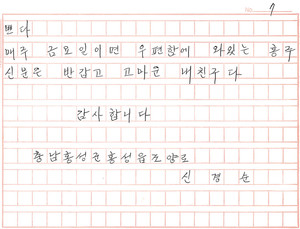 7
쁘다
매주 금요일이면 우편함에 와있는 홍주
신문은 반갑고 고마운 내친구다
감사합니다
충남홍성군홍성읍조양로
신경순